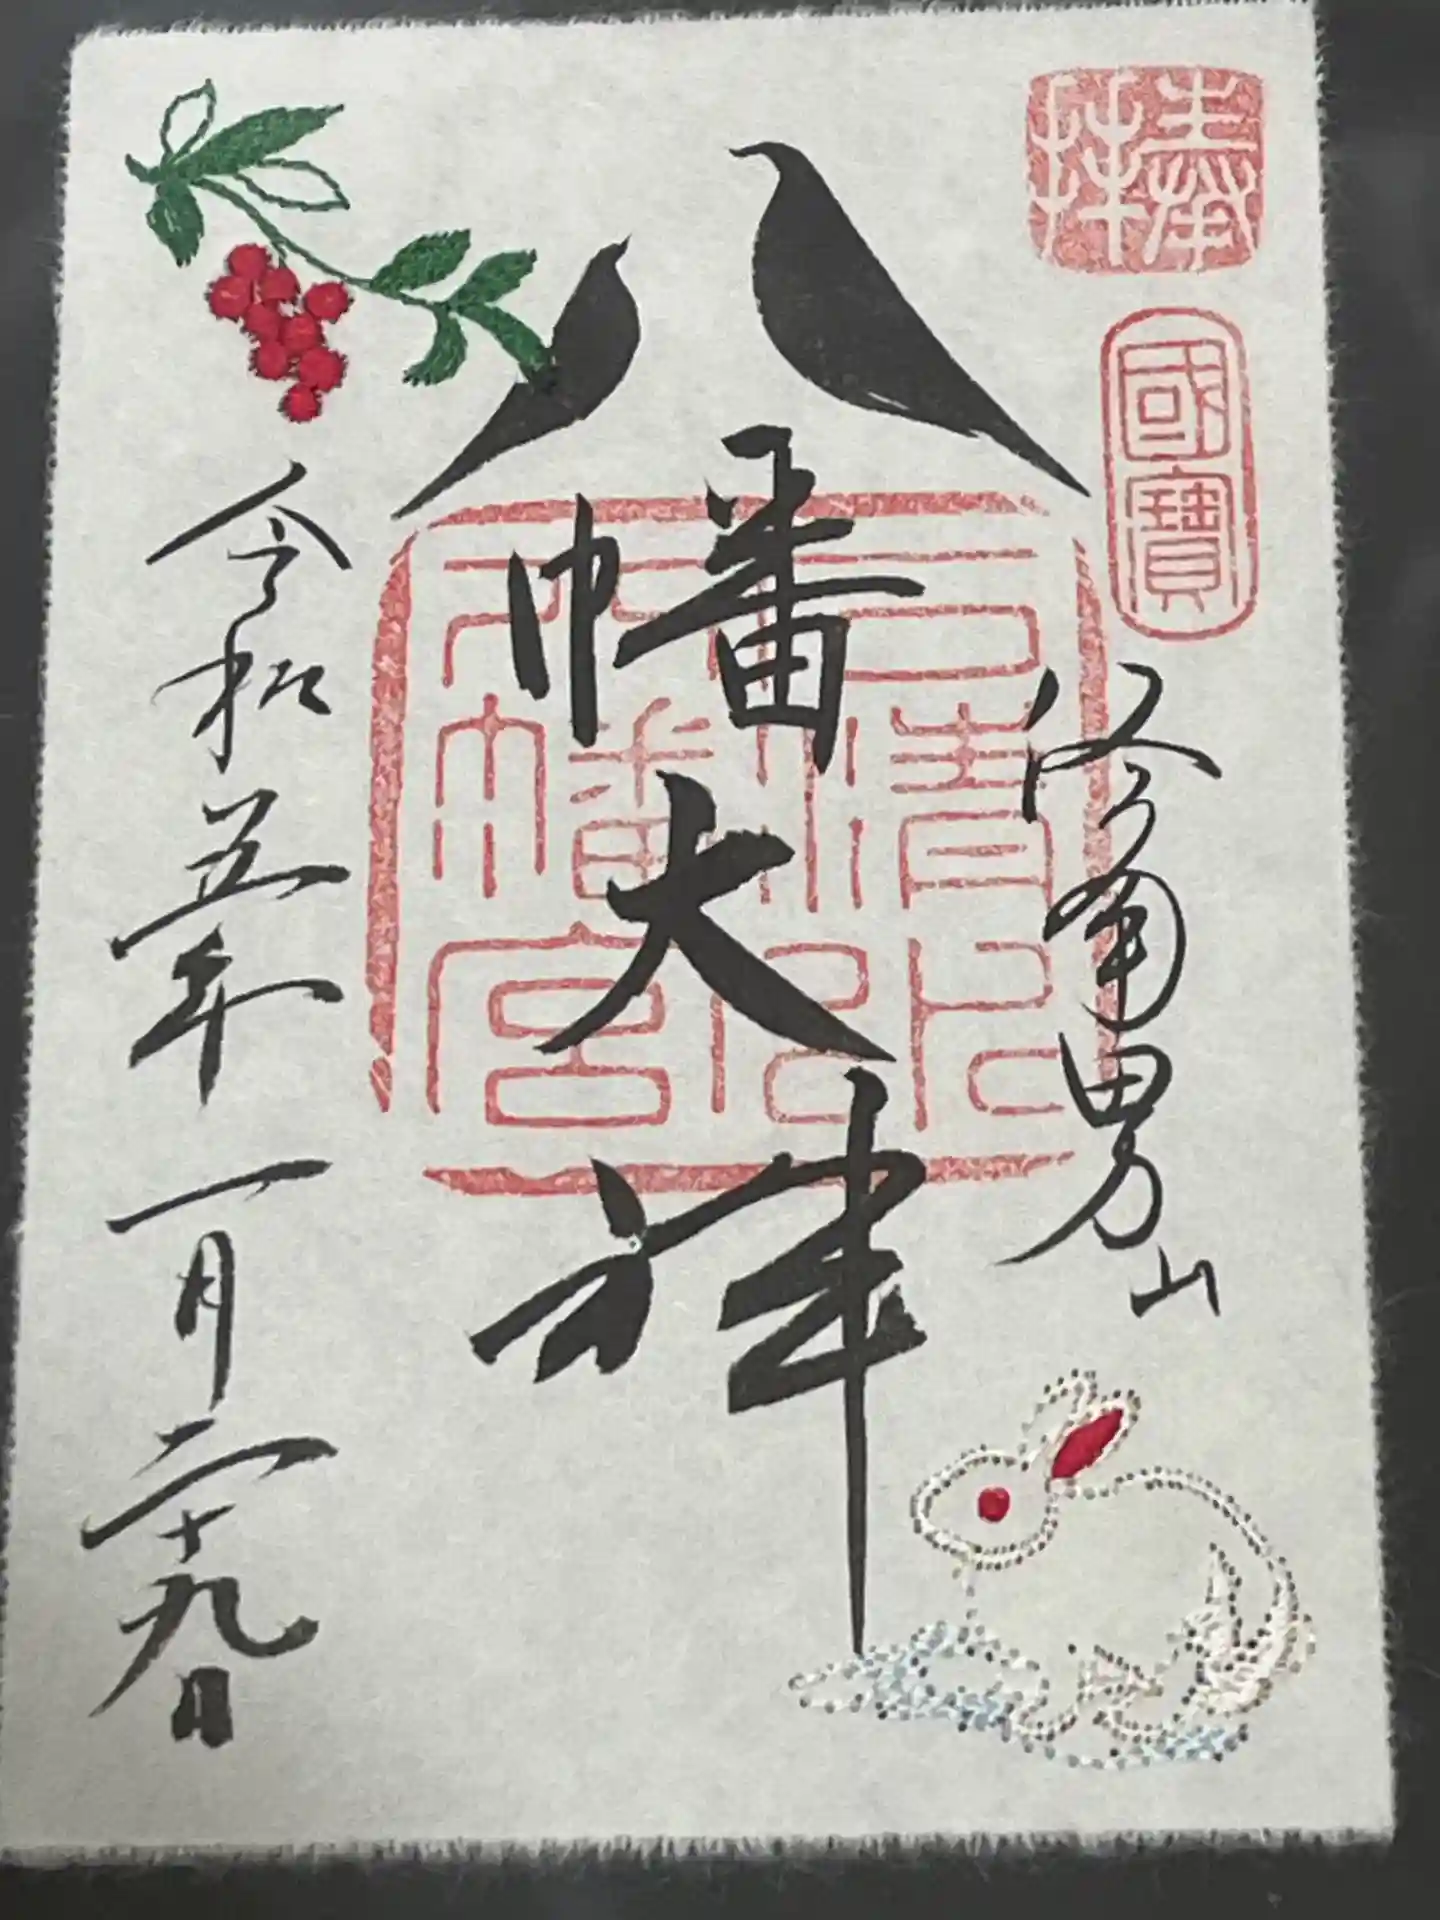 奉拝
國寳
洛南男山
八幡大神
石清水
八幡宮
令和五年一月二十九日